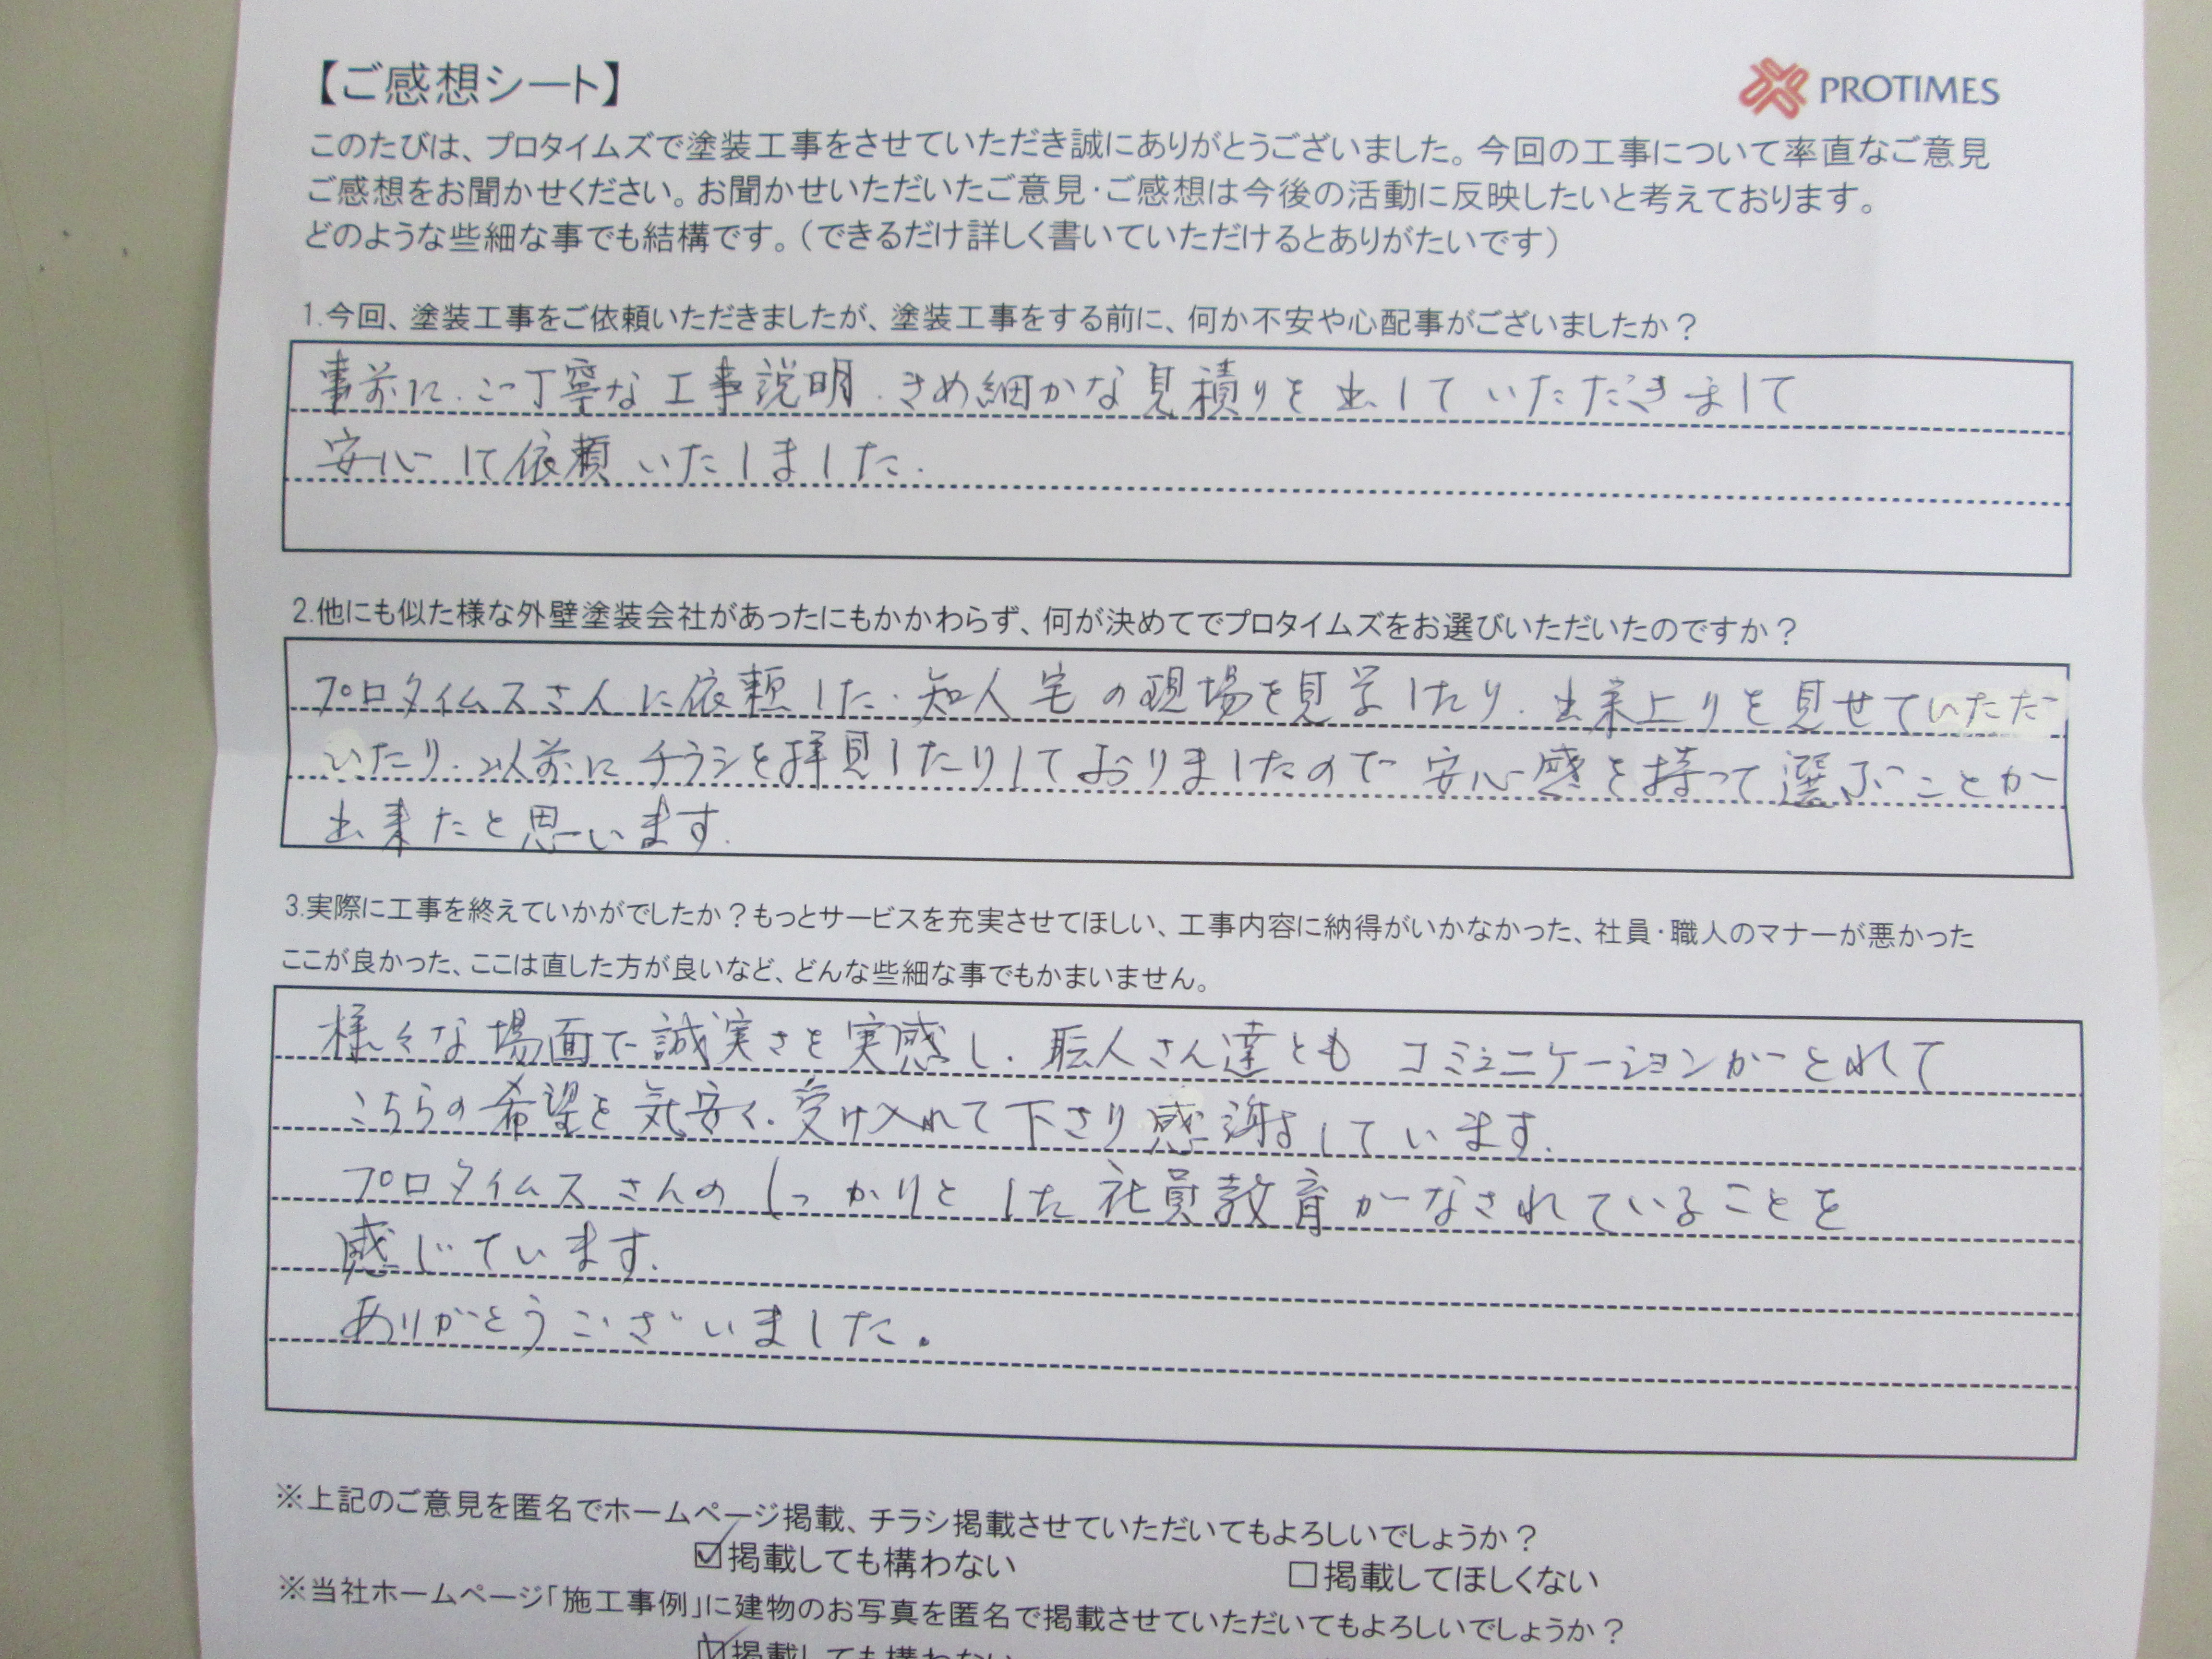 【ご感想シート】
PROTIMES
このたびは、プロタイムズで塗装工事をさせていただき誠にありがとうございました。今回の工事について率直なご意見
ご感想をお聞かせください。お聞かせいただいたご意見・ご感想は今後の活動に反映したいと考えております。
どのような些細な事でも結構です。（できるだけ詳しく書いていただけるとありがたいです）
1.今回、塗装工事をご依頼いただきましたが、塗装工事をする前に、何か不安や心配事がございましたか？
事前に、ご丁寧な工事説明、きめ細かな見積りを出していただきまして
安心して依頼いたしました.
2.他にも似た様な外壁塗装会社があったにもかかわらず、何が決めてでプロタイムズをお選びいただいたのですか？
プロタイムスさんに依頼した、知人宅の現場を見学したり、出来上りを見せていただ
いたり、以前にチラシを拝見したりしておりましたので安心感を持って選ぶことが
出来たと思います.
3.実際に工事を終えていかがでしたか？もっとサービスを充実させてほしい、工事内容に納得がいかなかった、社員・職人のマナーが悪かった
ここが良かった、ここは直した方が良いなど、どんな些細な事でもかまいません。
様々な場面で誠実さを実感し、職人さん達ともコミュニケーションがとれて
こちらの希望を気安く、受け入れて下さり感謝しています.
プロタイムスさんのしっかりとした社員教育がなされていることを
感じています.
ありがとうございました。
※上記のご意見を匿名でホームページ掲載、チラシ掲載させていただいてもよろしいでしょうか？
☑掲載しても構わない
□掲載してほしくない
※当社ホームページ「施工事例」に建物のお写真を匿名で掲載させていただいてもよろしいでしょうか？
☑掲載しても構わない